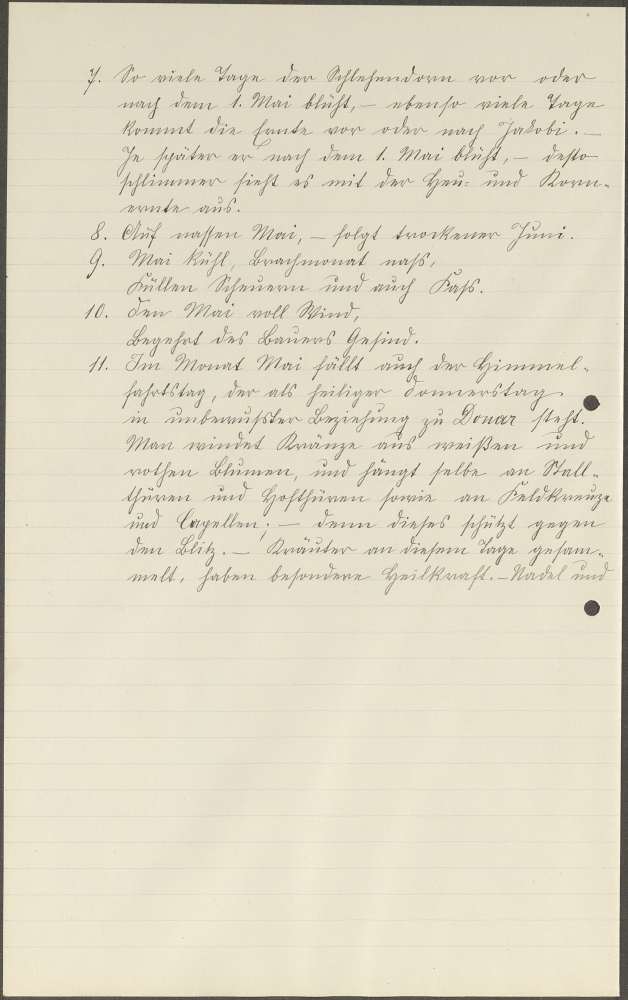 7. So viele Tage der Schlehendorn vor oder
nach dem 1. Mai blüht, – ebenso viele Tage
kommt die Ernte vor oder nach Jakobi. –
Je später er nach dem 1. Mai blüht, – desto
schlimmer sieht es mit der Heu- und Korn-
ernte aus.
8. Auf nassen Mai, – folgt trockener Juni.
9. Mai kühl, Brachmonat naß,
Füllen Scheuern und auch Faß.
10. Den Mai voll Wind,
Begehrt des Bauers Gesind.
11. Im Monat Mai fällt auch der Himmel-
fahrtstag, der als heiliger Donnerstag
in unbewußter Beziehung zu Donar steht.
Man windet Kränze aus weißen und
rothen Blumen, und hängt selbe an Stall-
thüren und Hofthüren sowie an Feldkreuze
und Capellen; – denn dieses schützt gegen
den Blitz. – Kräuter an diesem Tage gesam-
melt, haben besondere Heilkraft. – Nadel und